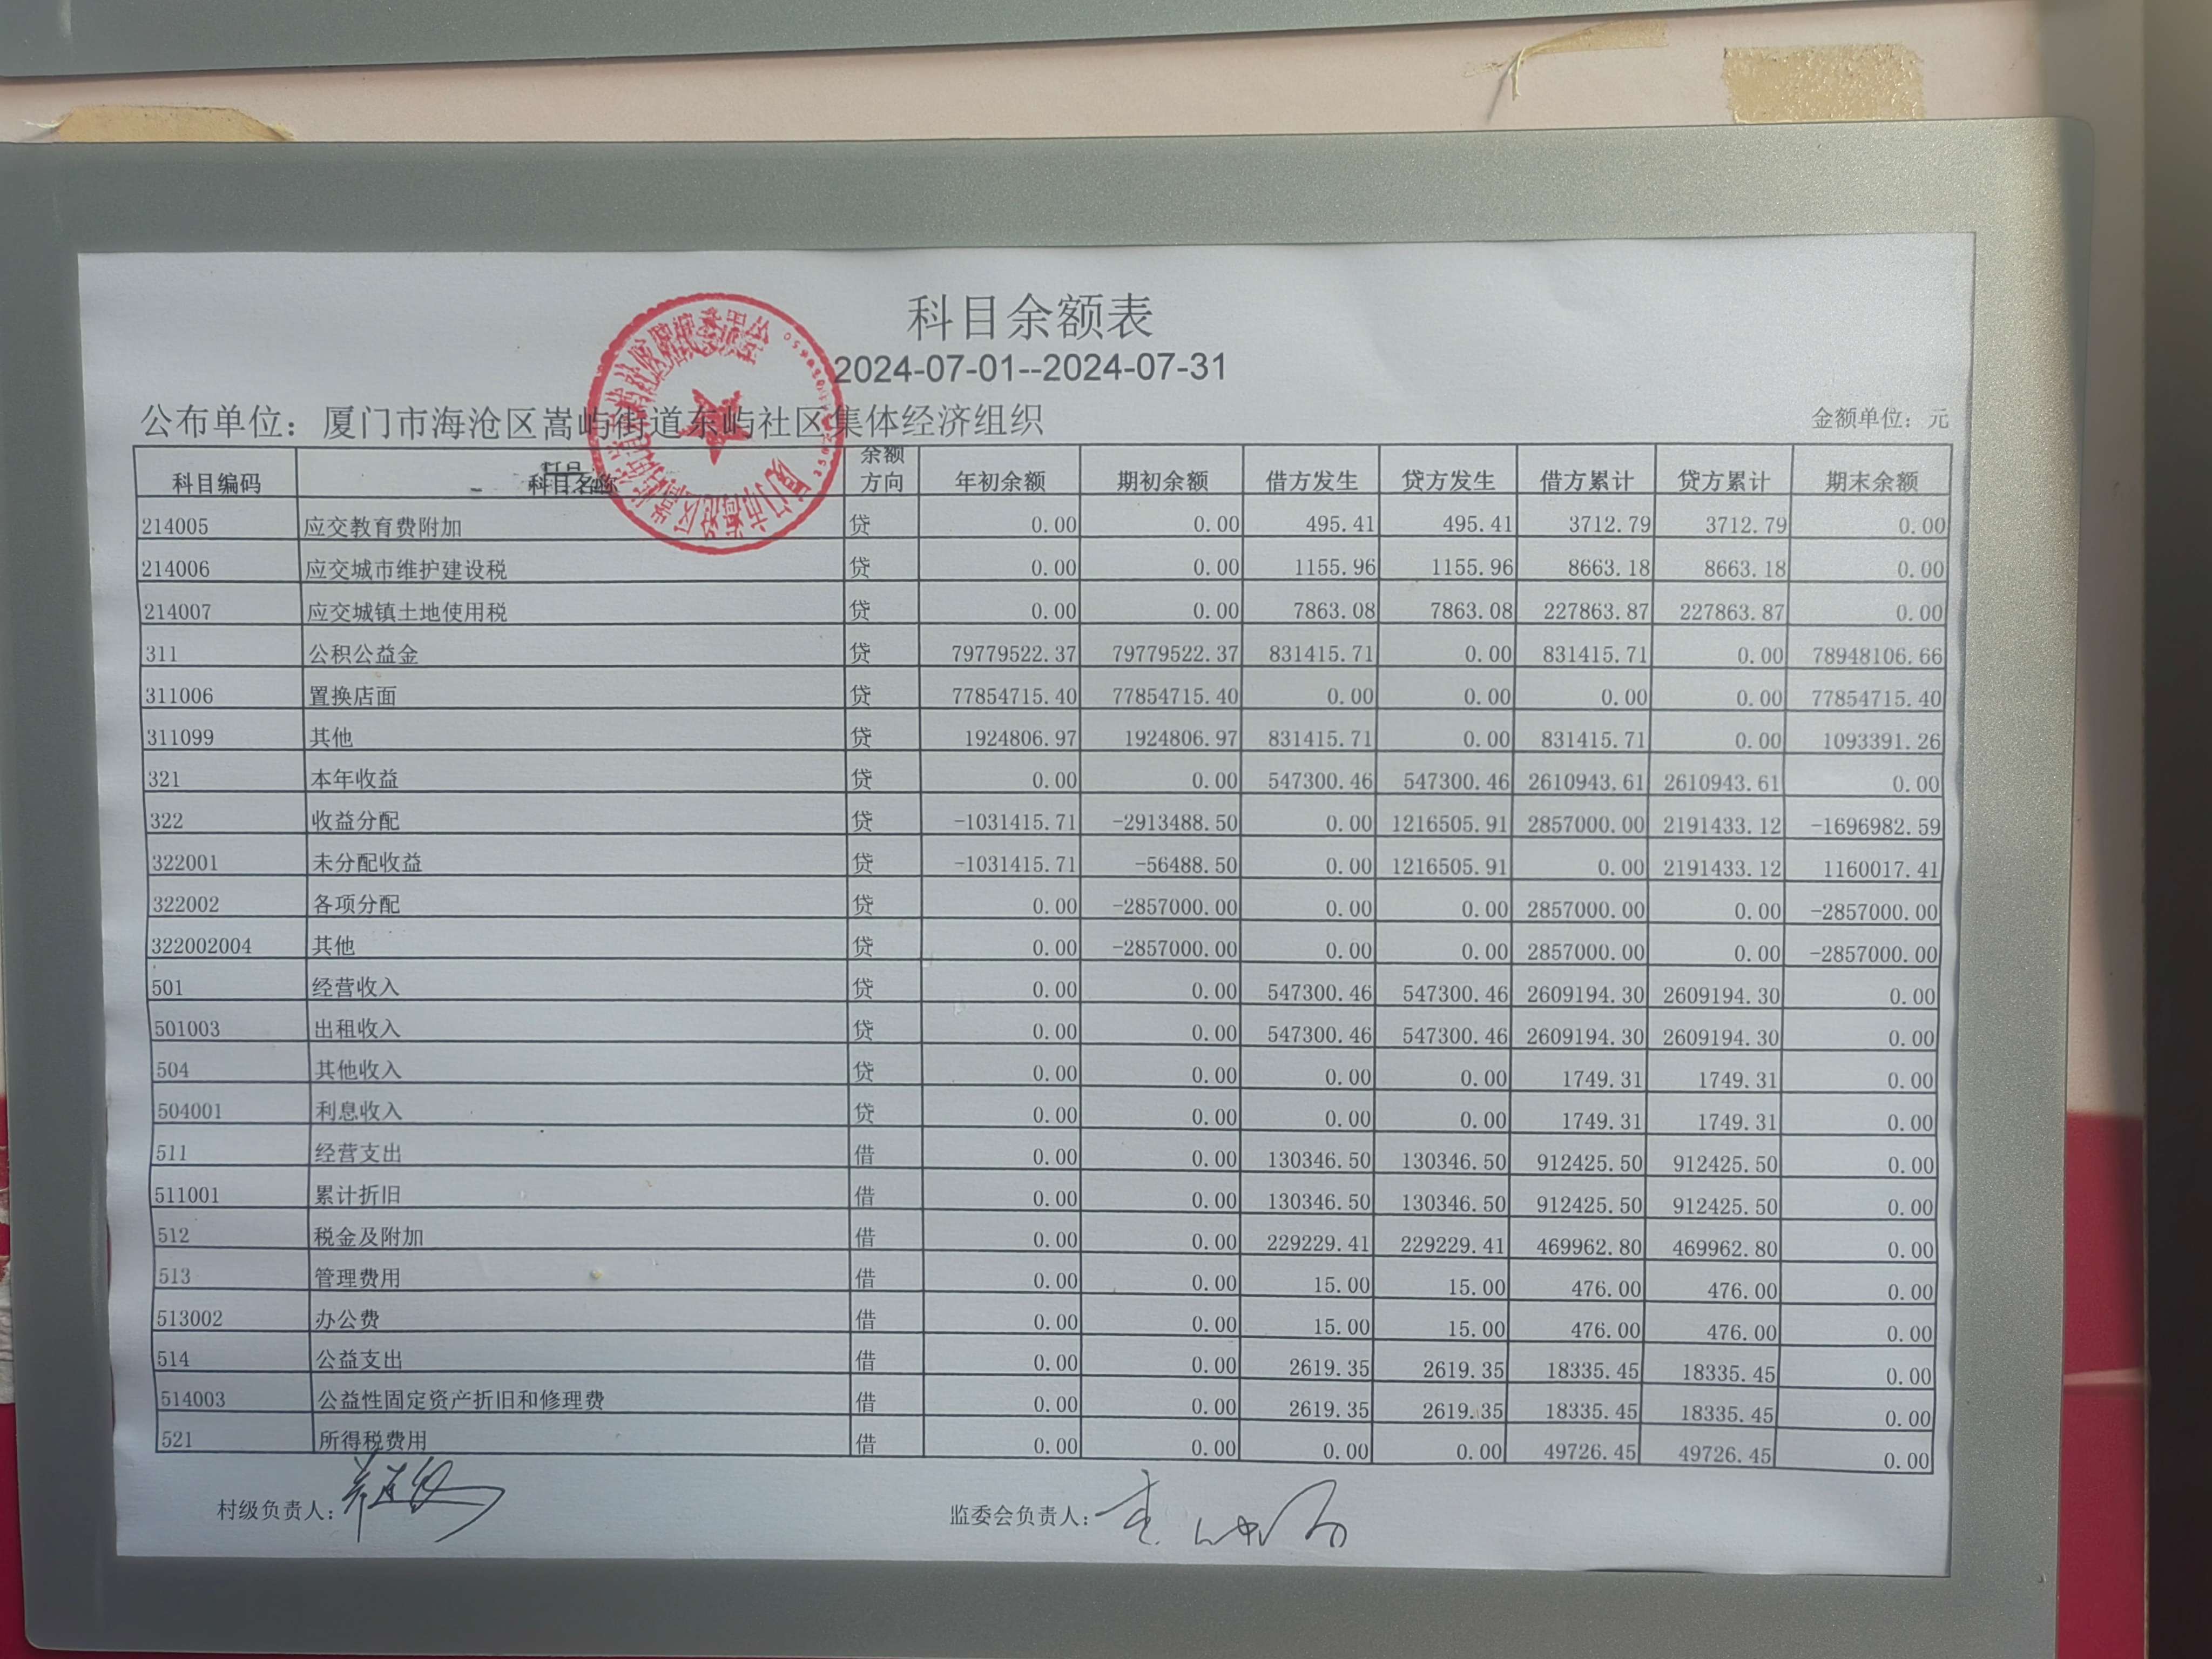 科目余额表
2024-07-01--2024-07-31
公布单位：厦门市海沧区嵩屿街道东屿社区集体经济组织 金额单位：元
科目编码 科目名称 余额方向 年初余额 期初余额 借方发生 贷方发生 借方累计 贷方累计 期末余额
214005 应交教育费附加 贷 0.00 0.00 495.41 495.41 3712.79 3712.79 0.00
214006 应交城市维护建设税 贷 0.00 0.00 1155.96 1155.96 8663.18 8663.18 0.00
214007 应交城镇土地使用税 贷 0.00 0.00 7863.08 7863.08 227863.87 227863.87 0.00
311 公积公益金 贷 79779522.37 79779522.37 831415.71 0.00 831415.71 0.00 78948106.66
311006 置换店面 贷 77854715.40 77854715.40 0.00 0.00 0.00 0.00 77854715.40
311099 其他 贷 1924806.97 1924806.97 831415.71 0.00 831415.71 0.00 1093391.26
321 本年收益 贷 0.00 0.00 547300.46 547300.46 2610943.61 2610943.61 0.00
322 收益分配 贷 -1031415.71 -2913488.50 0.00 1216505.91 2857000.00 2191433.12 -1696982.59
322001 未分配收益 贷 -1031415.71 -56488.50 0.00 1216505.91 0.00 2191433.12 1160017.41
322002 各项分配 贷 0.00 -2857000.00 0.00 0.00 2857000.00 0.00 -2857000.00
322002004 其他 贷 0.00 -2857000.00 0.00 0.00 2857000.00 0.00 -2857000.00
501 经营收入 贷 0.00 0.00 547300.46 547300.46 2609194.30 2609194.30 0.00
501003 出租收入 贷 0.00 0.00 547300.46 547300.46 2609194.30 2609194.30 0.00
504 其他收入 贷 0.00 0.00 0.00 0.00 1749.31 1749.31 0.00
504001 利息收入 贷 0.00 0.00 0.00 0.00 1749.31 1749.31 0.00
511 经营支出 借 0.00 0.00 130346.50 130346.50 912425.50 912425.50 0.00
511001 累计折旧 借 0.00 0.00 130346.50 130346.50 912425.50 912425.50 0.00
512 税金及附加 借 0.00 0.00 229229.41 229229.41 469962.80 469962.80 0.00
513 管理费用 借 0.00 0.00 15.00 15.00 476.00 476.00 0.00
513002 办公费 借 0.00 0.00 15.00 15.00 476.00 476.00 0.00
514 公益支出 借 0.00 0.00 2619.35 2619.35 18335.45 18335.45 0.00
514003 公益性固定资产折旧和修理费 借 0.00 0.00 2619.35 2619.35 18335.45 18335.45 0.00
521 所得税费用 借 0.00 0.00 0.00 0.00 49726.45 49726.45 0.00
村级负责人： 监委会负责人：